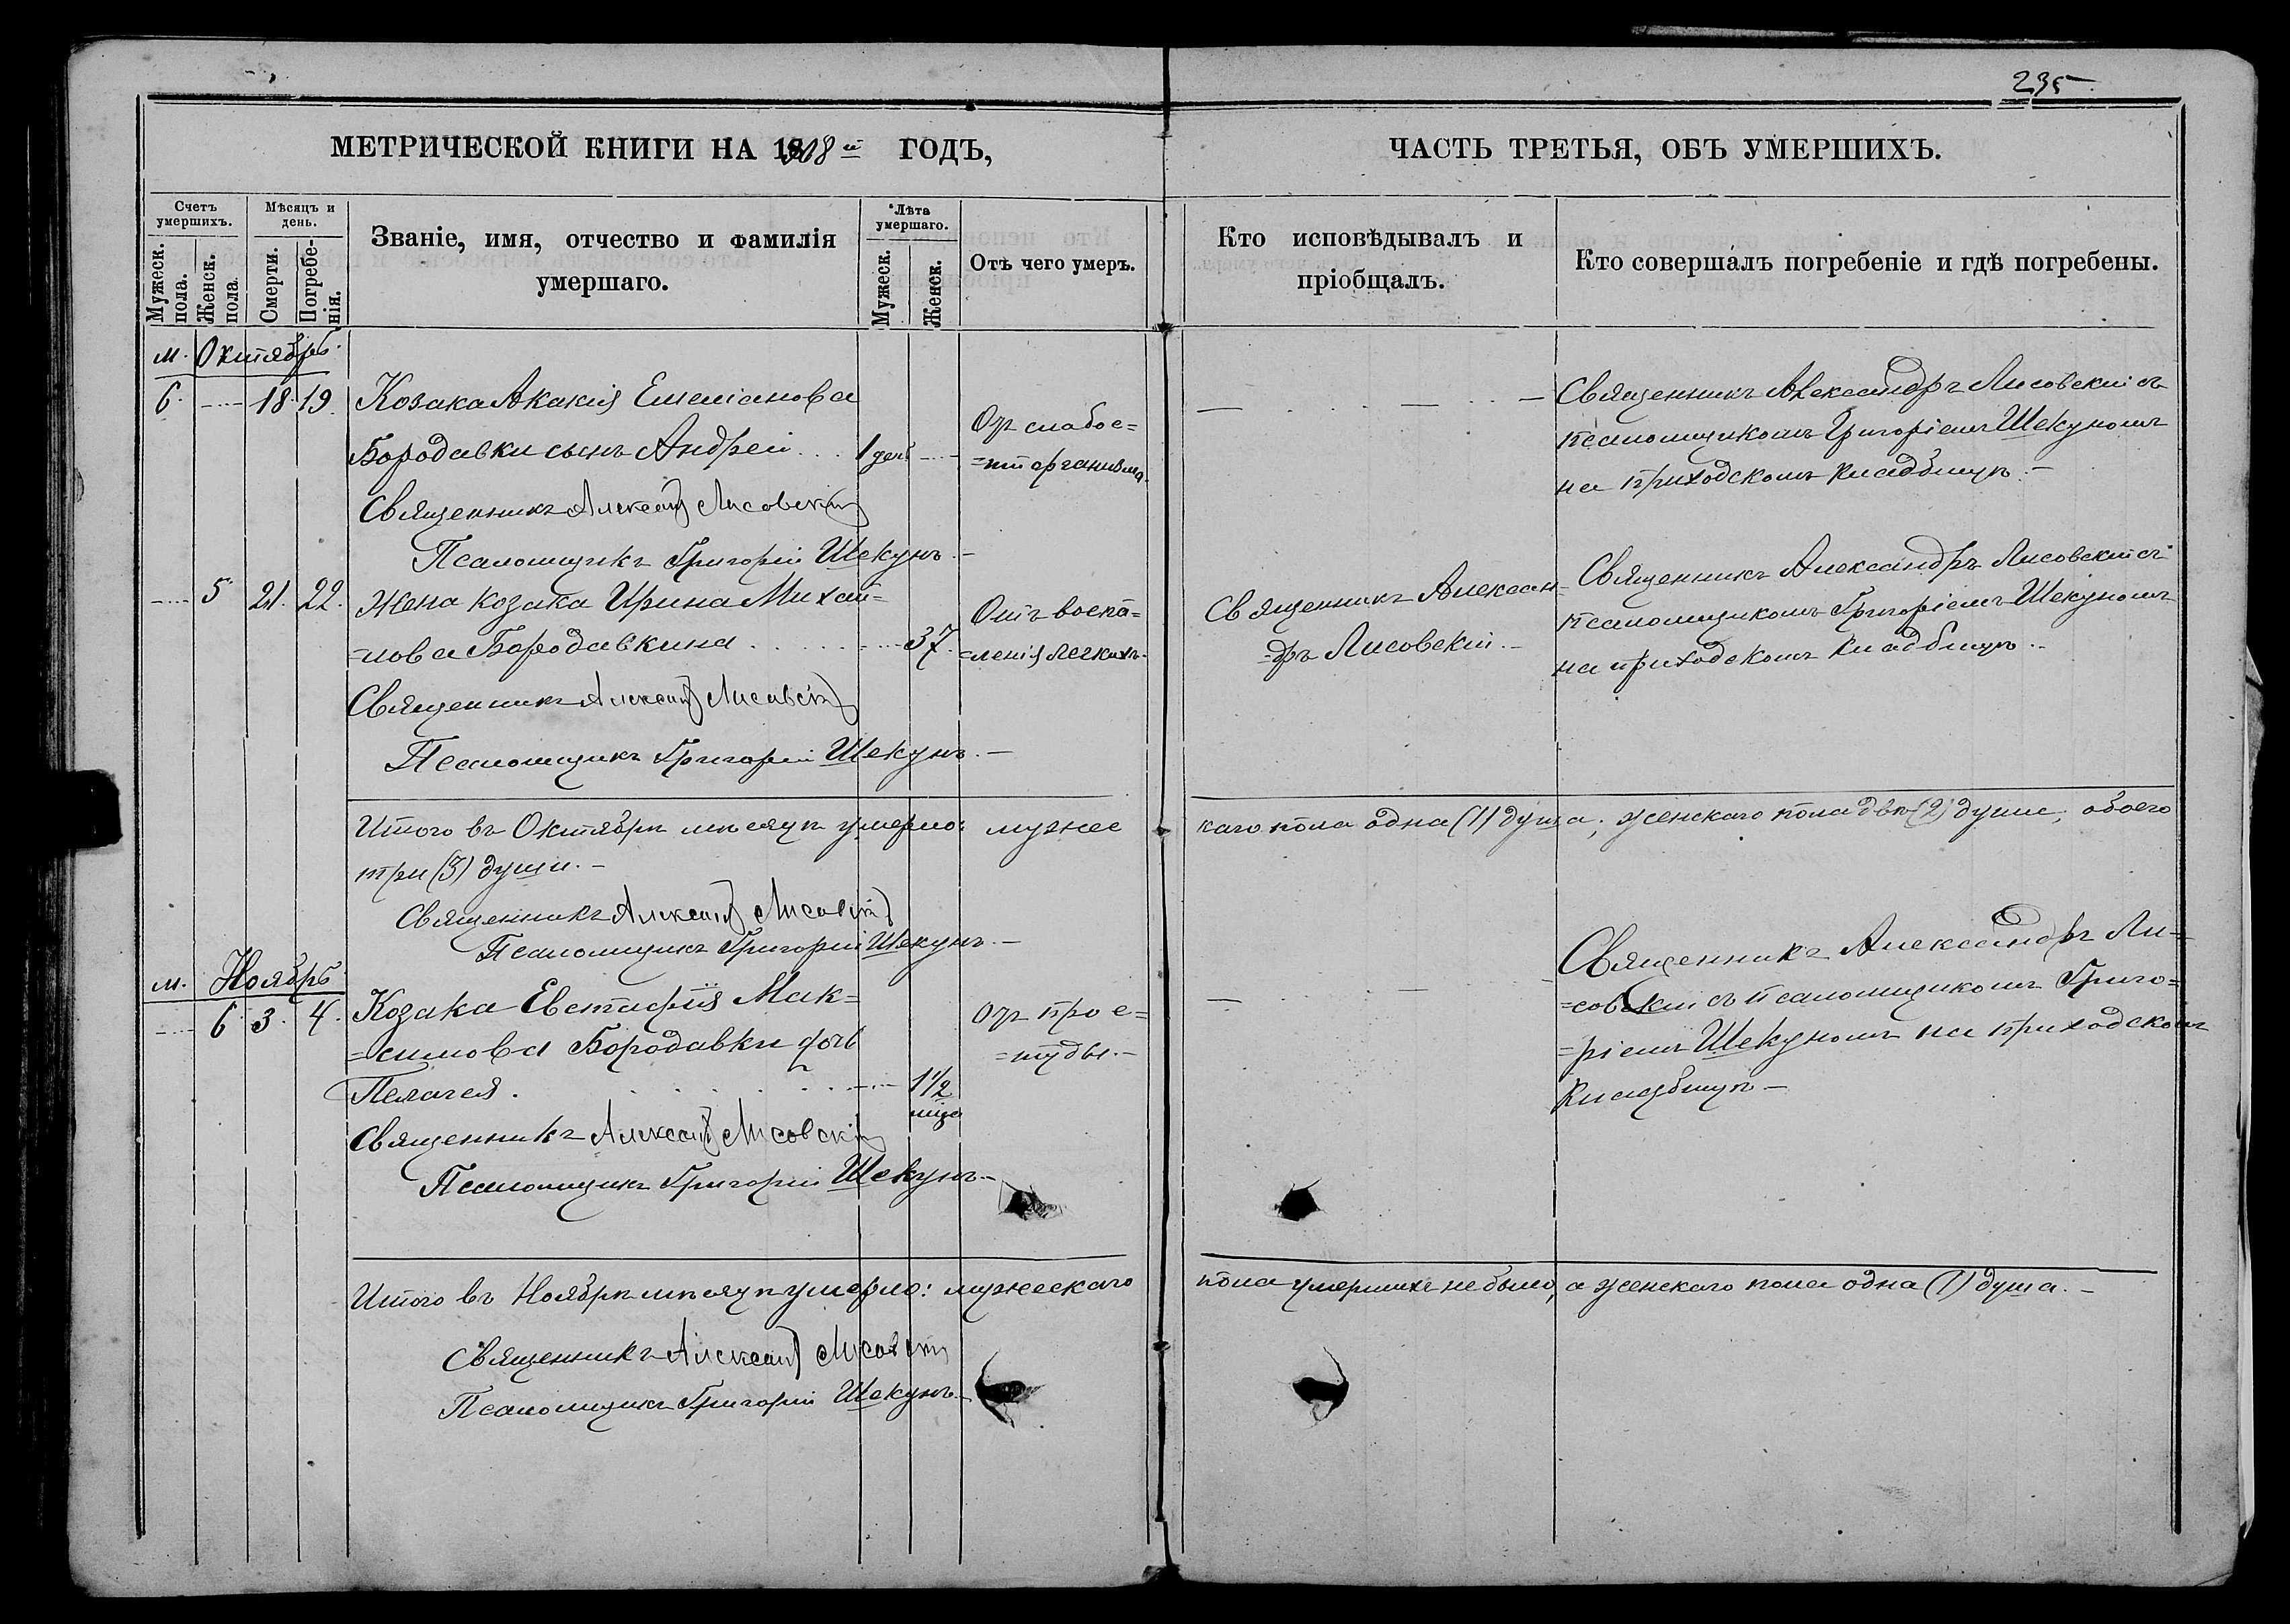 235
МЕТРИЧЕСКОЙ КНИГИ НА 1908й ГОДЪ,
ЧАСТЬ ТРЕТЬЯ, ОБЪ УМЕРШИХЪ.
Счетъ умершихъ.
Мужеск. пола.
Женск. пола.
Мѣсяцъ и день.
Смерти.
Погребенія.
Званіе, имя, отчество и фамилія
умершаго.
Лѣта умершаго.
Мужеск.
Женск.
Отъ чего умеръ.
Кто исповѣдывалъ и
пріобщалъ.
Кто совершалъ погребеніе и гдѣ погребены.
м. Октябрь.
6. 18. 19. Козака Акакія Емеліанова
Бородавки сынъ Андрей... 1 день
Отъ слабос=
=ти организма.
Священникъ Александръ Лисовскій съ
псаломщикомъ Григоріемъ Шекуномъ
на приходскомъ кладбищѣ.-
Священникъ Александръ Лисовскій
Псаломщикъ Григорій Шекунъ.-
5. 21. 22. Жена козака Ирина Михай=
=лова Бородавкина . . . . . 37.
Отъ воспа=
=ленія легкихъ.
Священникъ Алексан=
=дръ Лисовскій.-
Священникъ Александръ Лисовскій съ
псаломщикомъ Григоріемъ Шекуномъ
на приходскомъ кладбищѣ.-
Священникъ Александръ Лисовскій
Псаломщикъ Григорій Шекунъ.-
Итого въ Октябрѣ мѣсяцѣ умерло: мужес
каго пола одна (1) душа; женскаго пола двѣ (2) души, обоего
три (3) души.-
Священникъ Александръ Лисовскій
Псаломщикъ Григорій Шекунъ.-
м. Ноябрь
6. 3. 4. Козака Евстафія Мак=
=симова Бородавки дочь
Пелагея . . . . . 1½
мца
Отъ прос=
=туды.-
Священникъ Александръ Ли=
=совскій съ псаломщикомъ Григо=
=ріемъ Шекуномъ на приходскомъ
кладбищѣ-
Священникъ Александръ Лисовскій
Псаломщикъ Григорій Шекунъ.-
Итого въ Ноябрѣ мѣсяцѣ умерло: мужескаго
пола умершихъ не было, а женскаго пола одна (1) душа.-
Священникъ Александръ Лисовскій
Псаломщикъ Григорій Шекунъ.-